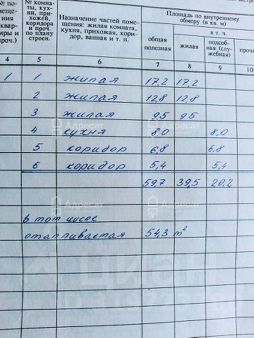 № по-
меще-
ния
(квар-
тиры и
проч.)
№ комна-
ты, кух-
ни, при-
хожей,
коридора
и проч.
по плану
строен.
Назначение частей поме-
щения: жилая комната,
кухня, прихожая, кори-
дор, ванная и т. п.
Площадь по внутреннему
обмеру (в кв. м)
в т. ч.
общая
полезная
жилая
подсоб-
ная (слу-
жебная)
проч
4 5 6 7 8 9 10
1 1 жилая 17,2 17,2
2 жилая 12,8 12,8
3 жилая 9,5 9,5
4 кухня 8,0 8,0
5 коридор 6,8 6,8
6 коридор 5,4 5,4
59,7 39,5 20,2
в том числе
отапливаемая 54,3 m²